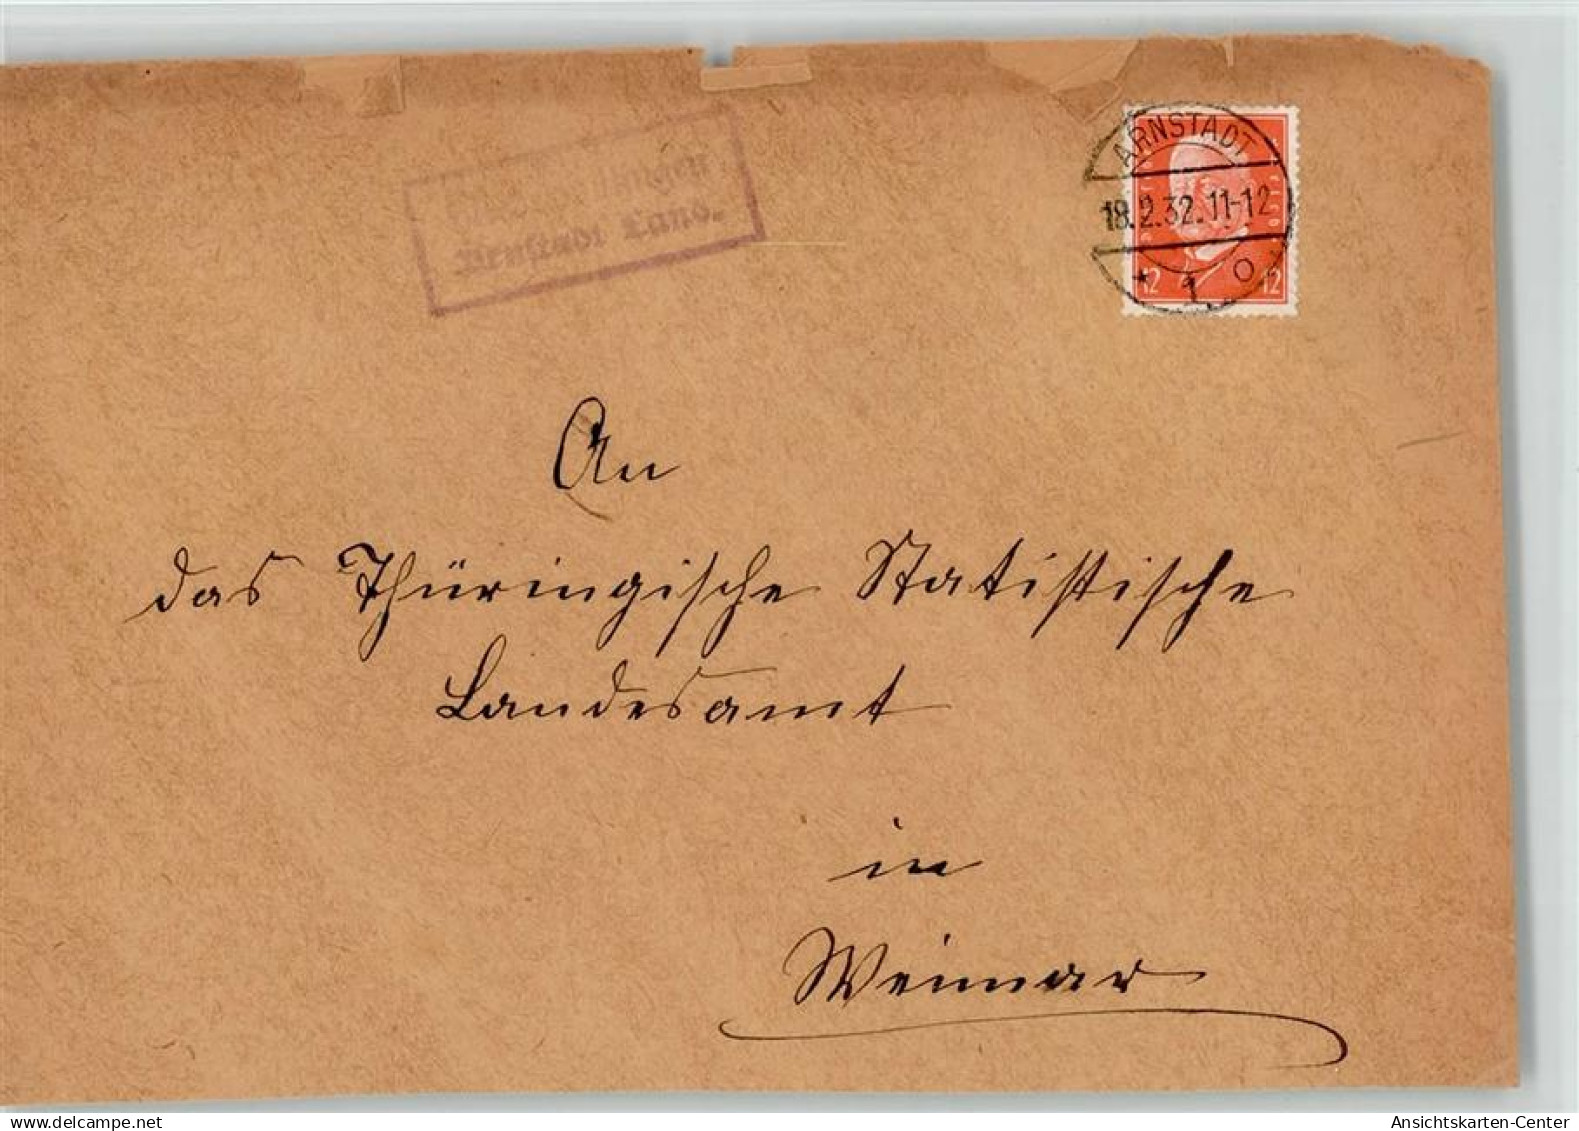 Arnstadt Land.
ARNSTADT
18.2.32.11-12
* 1 o
12 12
An
das Thüringische Statistische
Landesamt
in
Weimar
Ansichtskarten-Center